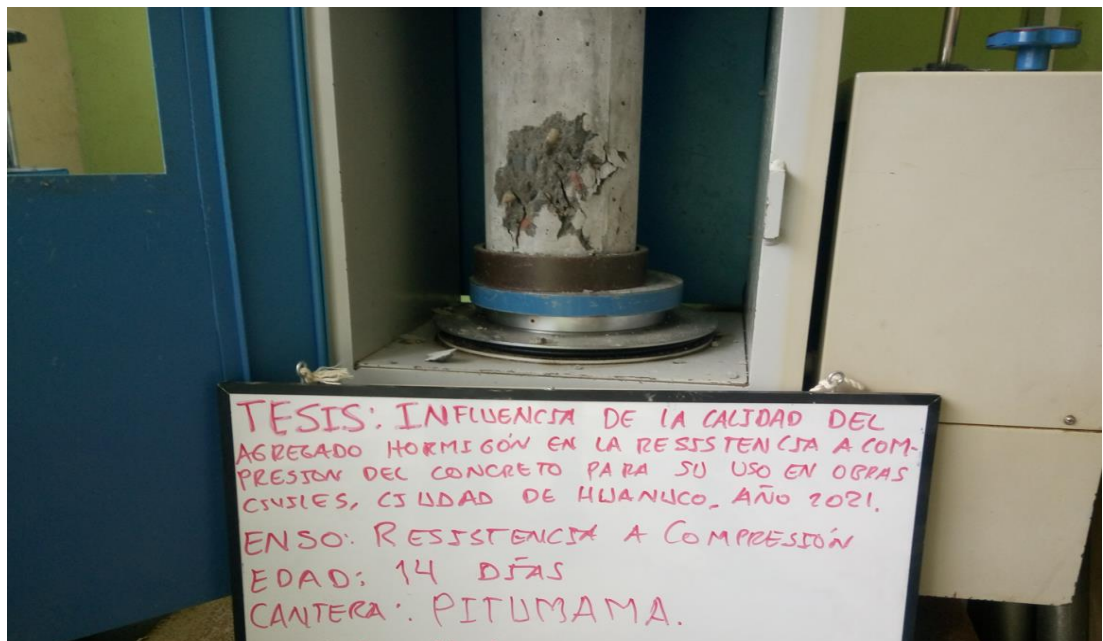 TESIS: INFLUENCIA DE LA CALIDAD DEL
AGREGADO HORMIGÓN EN LA RESISTENCIA A COM-
PRESION DEL CONCRETO PARA SU USO EN OBRAS
CIVILES, CIUDAD DE HUANUCO, AÑO 2021.
ENSO: RESISTENCIA A COMPRESIÓN
EDAD: 14 DÍAS
CANTERA: PITUMAMA.